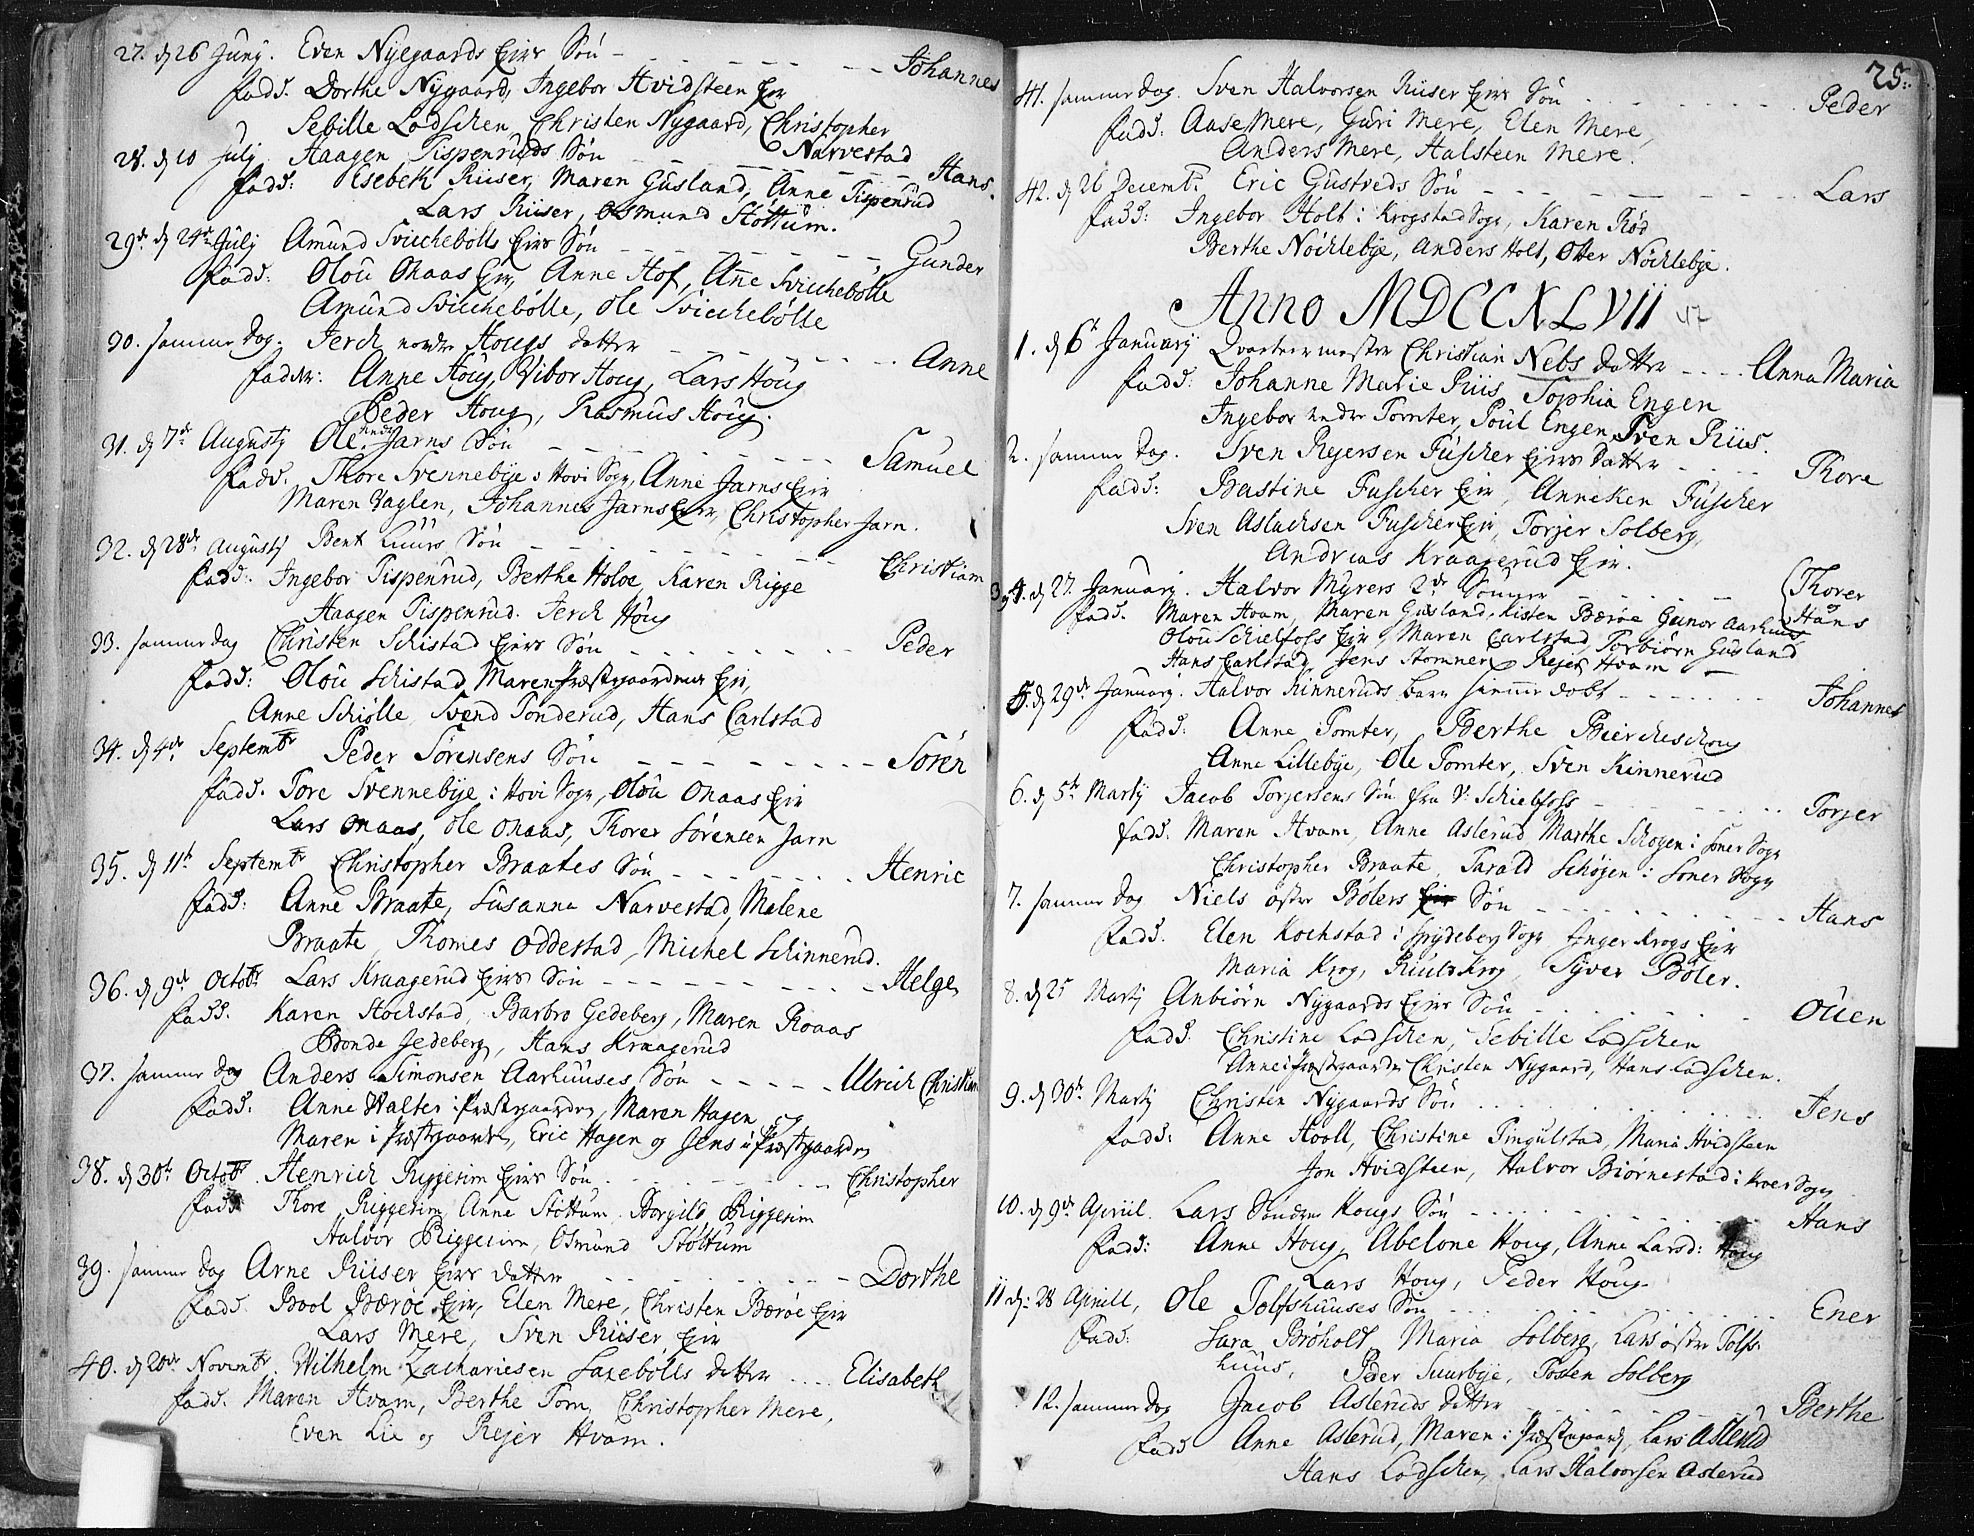 27. d 26 Junij. Even Nÿegaards Eiers Søn - - - - - - Johannes
Fadd. Dorthe Nÿgaard, Ingebor Hvidsteen Eie
Sebille Ladschen Christen Nygaard, Christopher
Narvestad
28. d 10 Julj Haagen Tispenruds Søn - - - - - - Hans.
Fadd: Elsebek Riiser, Maren Gusland, Anne Tispenrud
Lars Riiser, Osmund Støttum.
29de d 24de Julj Amund Svichebølls Eiers Søn - - - - - - Gunder
Fadd: Olou Onaas Eie, Anne Hof, Anne Svichebølle
Amund Svichebølle, Ole Svichebølle
30. Samme Dag. Jerch nordre Hougs datter - - - - - - Anne
Fadder: Anne Houg, Vibor Houg, Lars Houg
Peder Houg, Rasmus Houg.
31. d 7de Augustj Ole nedr Jarns Søn - - - - - - Samuel
Fadd. Thore Svennebye i Hovi Sogn, Anne Jarns Eie
Maren Vaglen, Johannes Jarns Eie, Christopher Jarn.
32. d 28de Augustj Bent Luurs Søn - - - - - - Christian
Fadd: Ingebor Tispenrud, Berthe Holoe Karen Rigge
Haagen Tispenrud. Jerch Houg
33. Samme Dag Christen Schistad Eiers Søn - - - - - - Peder
Fadd: Olou Schistad, Maren Præstegaarden Eie,
Anne Schiolle, Svend Tonderud, Hans Carlstad
34. d 4de Septembr Peder Sørensens Søn - - - - - - Søren
Fadd. Tore Svennebye i Hovi Sogn, Olou Onaas Eie
Lars Onaas, Ole Onaas, Thorer Sørensen Jarn
35. d 11te Septembr Christopher Braates Søn - - - - - - Henric
Fadd: Anne Braate, Susanna Narvestad, Malene
Braate, Thomes Oddestad, Michel Schinnerud.
36. d 9de Octobr Lars Kraagerud Eiers Søn - - - - - - Helge
Fadd. Karen Hochstad, Barbro Gedeberg, Maren Roaas
Bonde Gedeberg, Hans Kraagerud
37. Samme Dag Anders Simonsen Aarhuuses Søn - - - - - Ulrich Christian
Fadd: Anne Walter i Præstegaarden, Maren Hagen og
Maren i Præstegaarden, Eric Hagen og Jens i Præstgaarden
38. d 30te Octobr. Henrich Riggesim Eiers Søn - - - - - - Christopher
Fadd Thore Riggesim, Anne Støttum Borgild Riggesim
Halvor Riggesim, Osmund Støttum
39. Samme Dag Arne Riiser Eiers datter - - - - - - Dorthe
Fadd. Bool Bærøe Eie, Elen Mere, Christen Bærøe Eie
Lars Mere, Sven Riiser Eie
40. d 20de Novembr Wilhelm Zachariesen Saxebølls datter .... Elisabeth
Fadd. Maren Hvam, Berthe Tom, Christopher Mere,
Even Lie og Rejer Hvam.
25.
41. Samme Dag. Sven Halvorsen Riiser Eiers Søn - - - - - - Peder
Fadd: Aase Mere, Guri Mere, Elen Mere,
Anders Mere, Halsteen Mere.
42. d 26 Decembr Eric Gustveds Søn - - - - - - Lars
Fadd: Ingebor Holt i Krogstad Sogn, Karen Rød
Berthe Nøchlebye, Anders Holt, Otter Nøchlebye.
Anno MDCCXLVII 47
1. d 6te Januarij Qvarteermester Christian Nebs datter - - - - Anna Maria
Fadd: Johanne Marie Riis, Sophia Engen
Ingebor nedre Tomter, Poul Engen, Sven Riis.
2. Samme Dag. Sven Rejersen Fuscher Eiers Datter - - - - Thore
Fadd: Bastine Fuscher Eie, Anneken Fuscher
Sven Aslachsen Fuscher Eie, Torjer Solberg,
Andreas Kraagerud Eie.
3 og 4. d 27. Januarij. Halvor Myrers 2de Sønner - - - - - { Thorer
Hans
Fadd. Maren Hvam, Maren Gusland, Kisten Bærøe Gunor Aarhuus
Olou Schielfoss Eie, Maren Carlstad, Torbiørn Gusland
Hans Carlstad, Jens Stomner, Rejer Hvam
5. d 29de Januarij. Halvor Kinneruds barn hiemme døbt - - - - - Johannes
Fadd: Anne Tomter, Berthe Biercheschoug
Anne Lillebye, Ole Tomter, Sven Kinnerud
6. d 5te Martij Jacob Torjersens Søn fra V: Schielfoss - - - - - Torjer
Fadd. Maren Hvam, Anne Asterud Marthe Schogen i Soner Sogn
Christopher Braate, Tarald Schøgen i Soner Sogn
7. Samme Dag Niels østre Bølers Søn - - - - - - Hans
Fadd. Elen Kochstad i Spydeberg Sogn Inger Krogs Eie
Maria Krog, Riulv Krog, Syver Bøler.
8. d 25 Martj Anbiørn Nÿgaards Eiers Søn - - - - - - Ouen
Fadd Christine Ladschen, Sebille Ladschen
Anne i Præstegaarden Christen Nygaard, Hans Ladschen.
9. d 30te Martij Christen Nÿgaards Søn - - - - - - Jens
Fadd: Anne Hooll, Christine Tingulstad, Maria Hvidsteen
Jon Hvidsteen, Halvor Biørnestad i Kroer Sogn
10. d 9de Apriil. Lars Søndre Hougs Søn - - - - - - Hans
Fadd: Anne Houg, Abelone Houg, Anne Larsd: Houg
Lars Houg, Peder Houg.
11 d: 28 Aprill, Ole Tolfshuuses Søn - - - - - - Ener
Fadd: Sara Brøholdt, Maria Solberg, Lars østre Tolfs-
huus, Peder Suurbye, Tosten Solberg
12. Samme Dag Jacob Asteruds datter - - - - - - Berthe
Fadd Anne Asterud, Maren i Præstegaard, Lars Asterud
Hans Ladschen, Lars Halvorsen Asterud